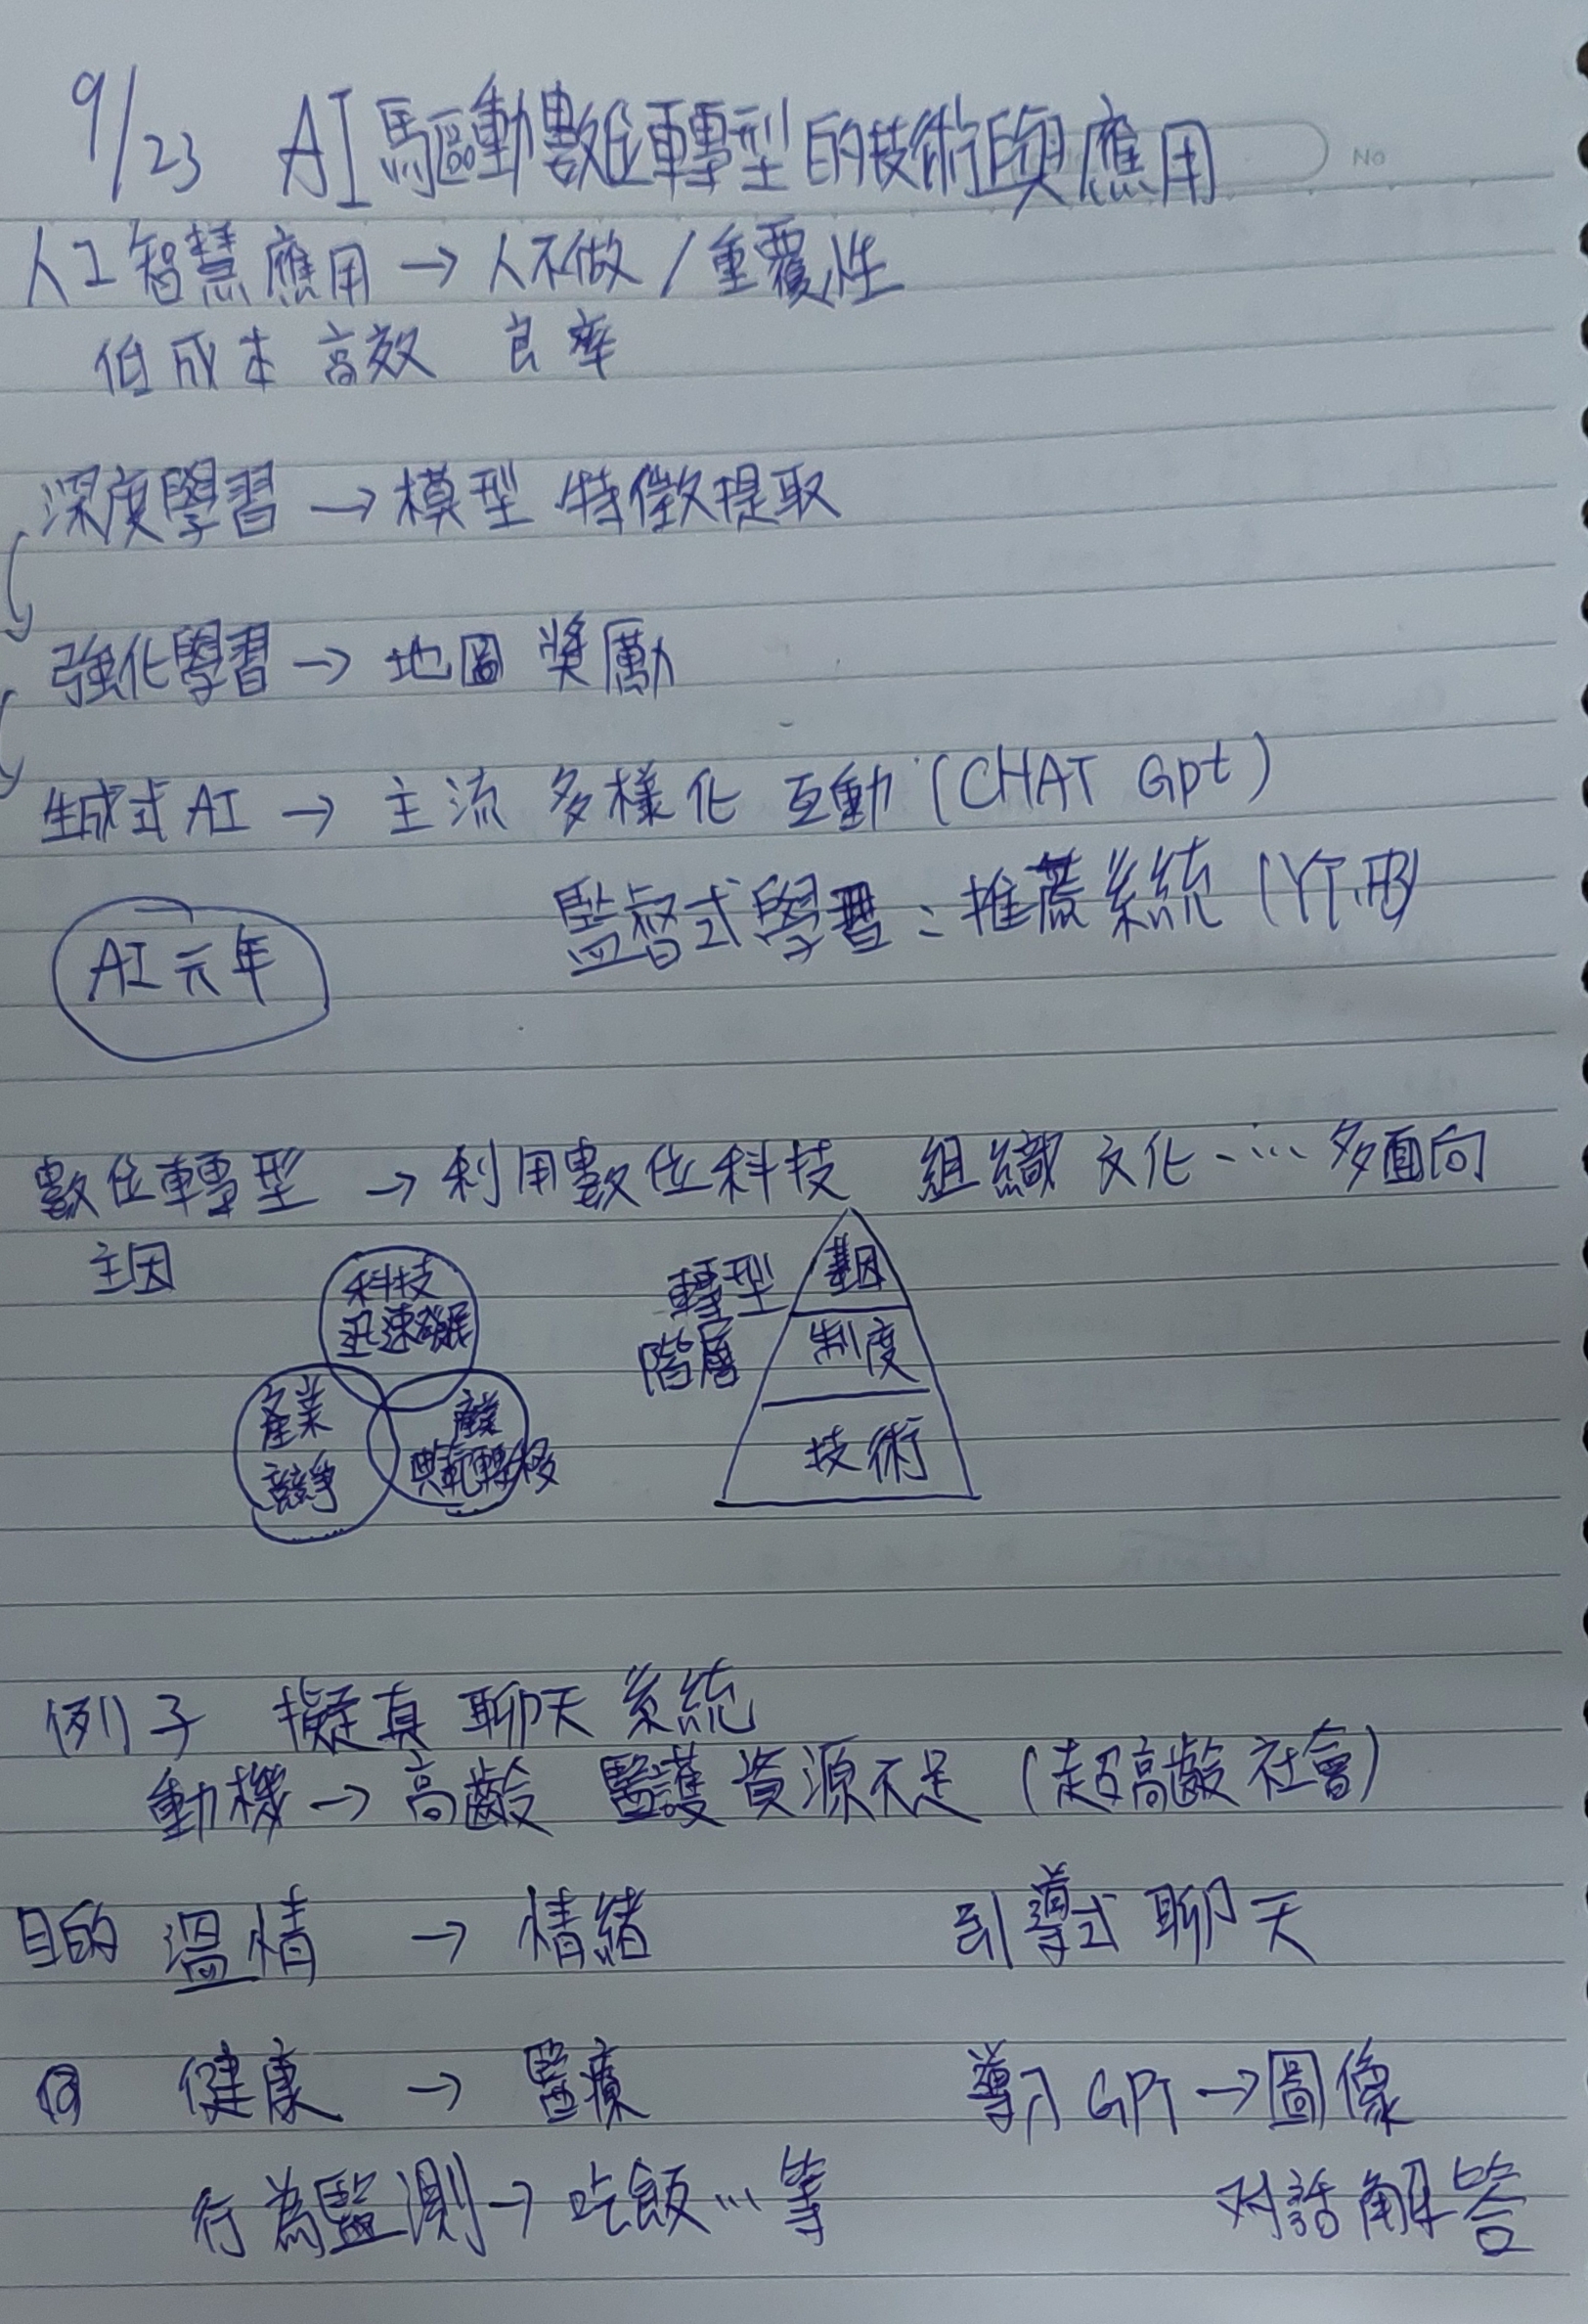 9/23 AI驅動數位轉型的技術與應用
NO
人工智慧應用→人不做/重覆性
低成本 高效 良率
深度學習→模型 特徵提取
強化學習→地圖 獎勵
生成式AI→主流 多樣化 互動(CHAT Gpt)
監督式學習:推薦系統(YT.FB)
AI元年
數位轉型→利用數位科技 組織 文化.... 多面向
主因
科技
迅速發展
產業
競爭
產業
典範轉移
轉型
階層
基因
制度
技術
例子 擬真聊天系統
動機→高齡 醫護資源不足(超高齡社會)
目的 溫情 → 情緒 引導式聊天
健康 → 醫療 導入GPT→圖像
行為監測→吃飯...等 对話解答